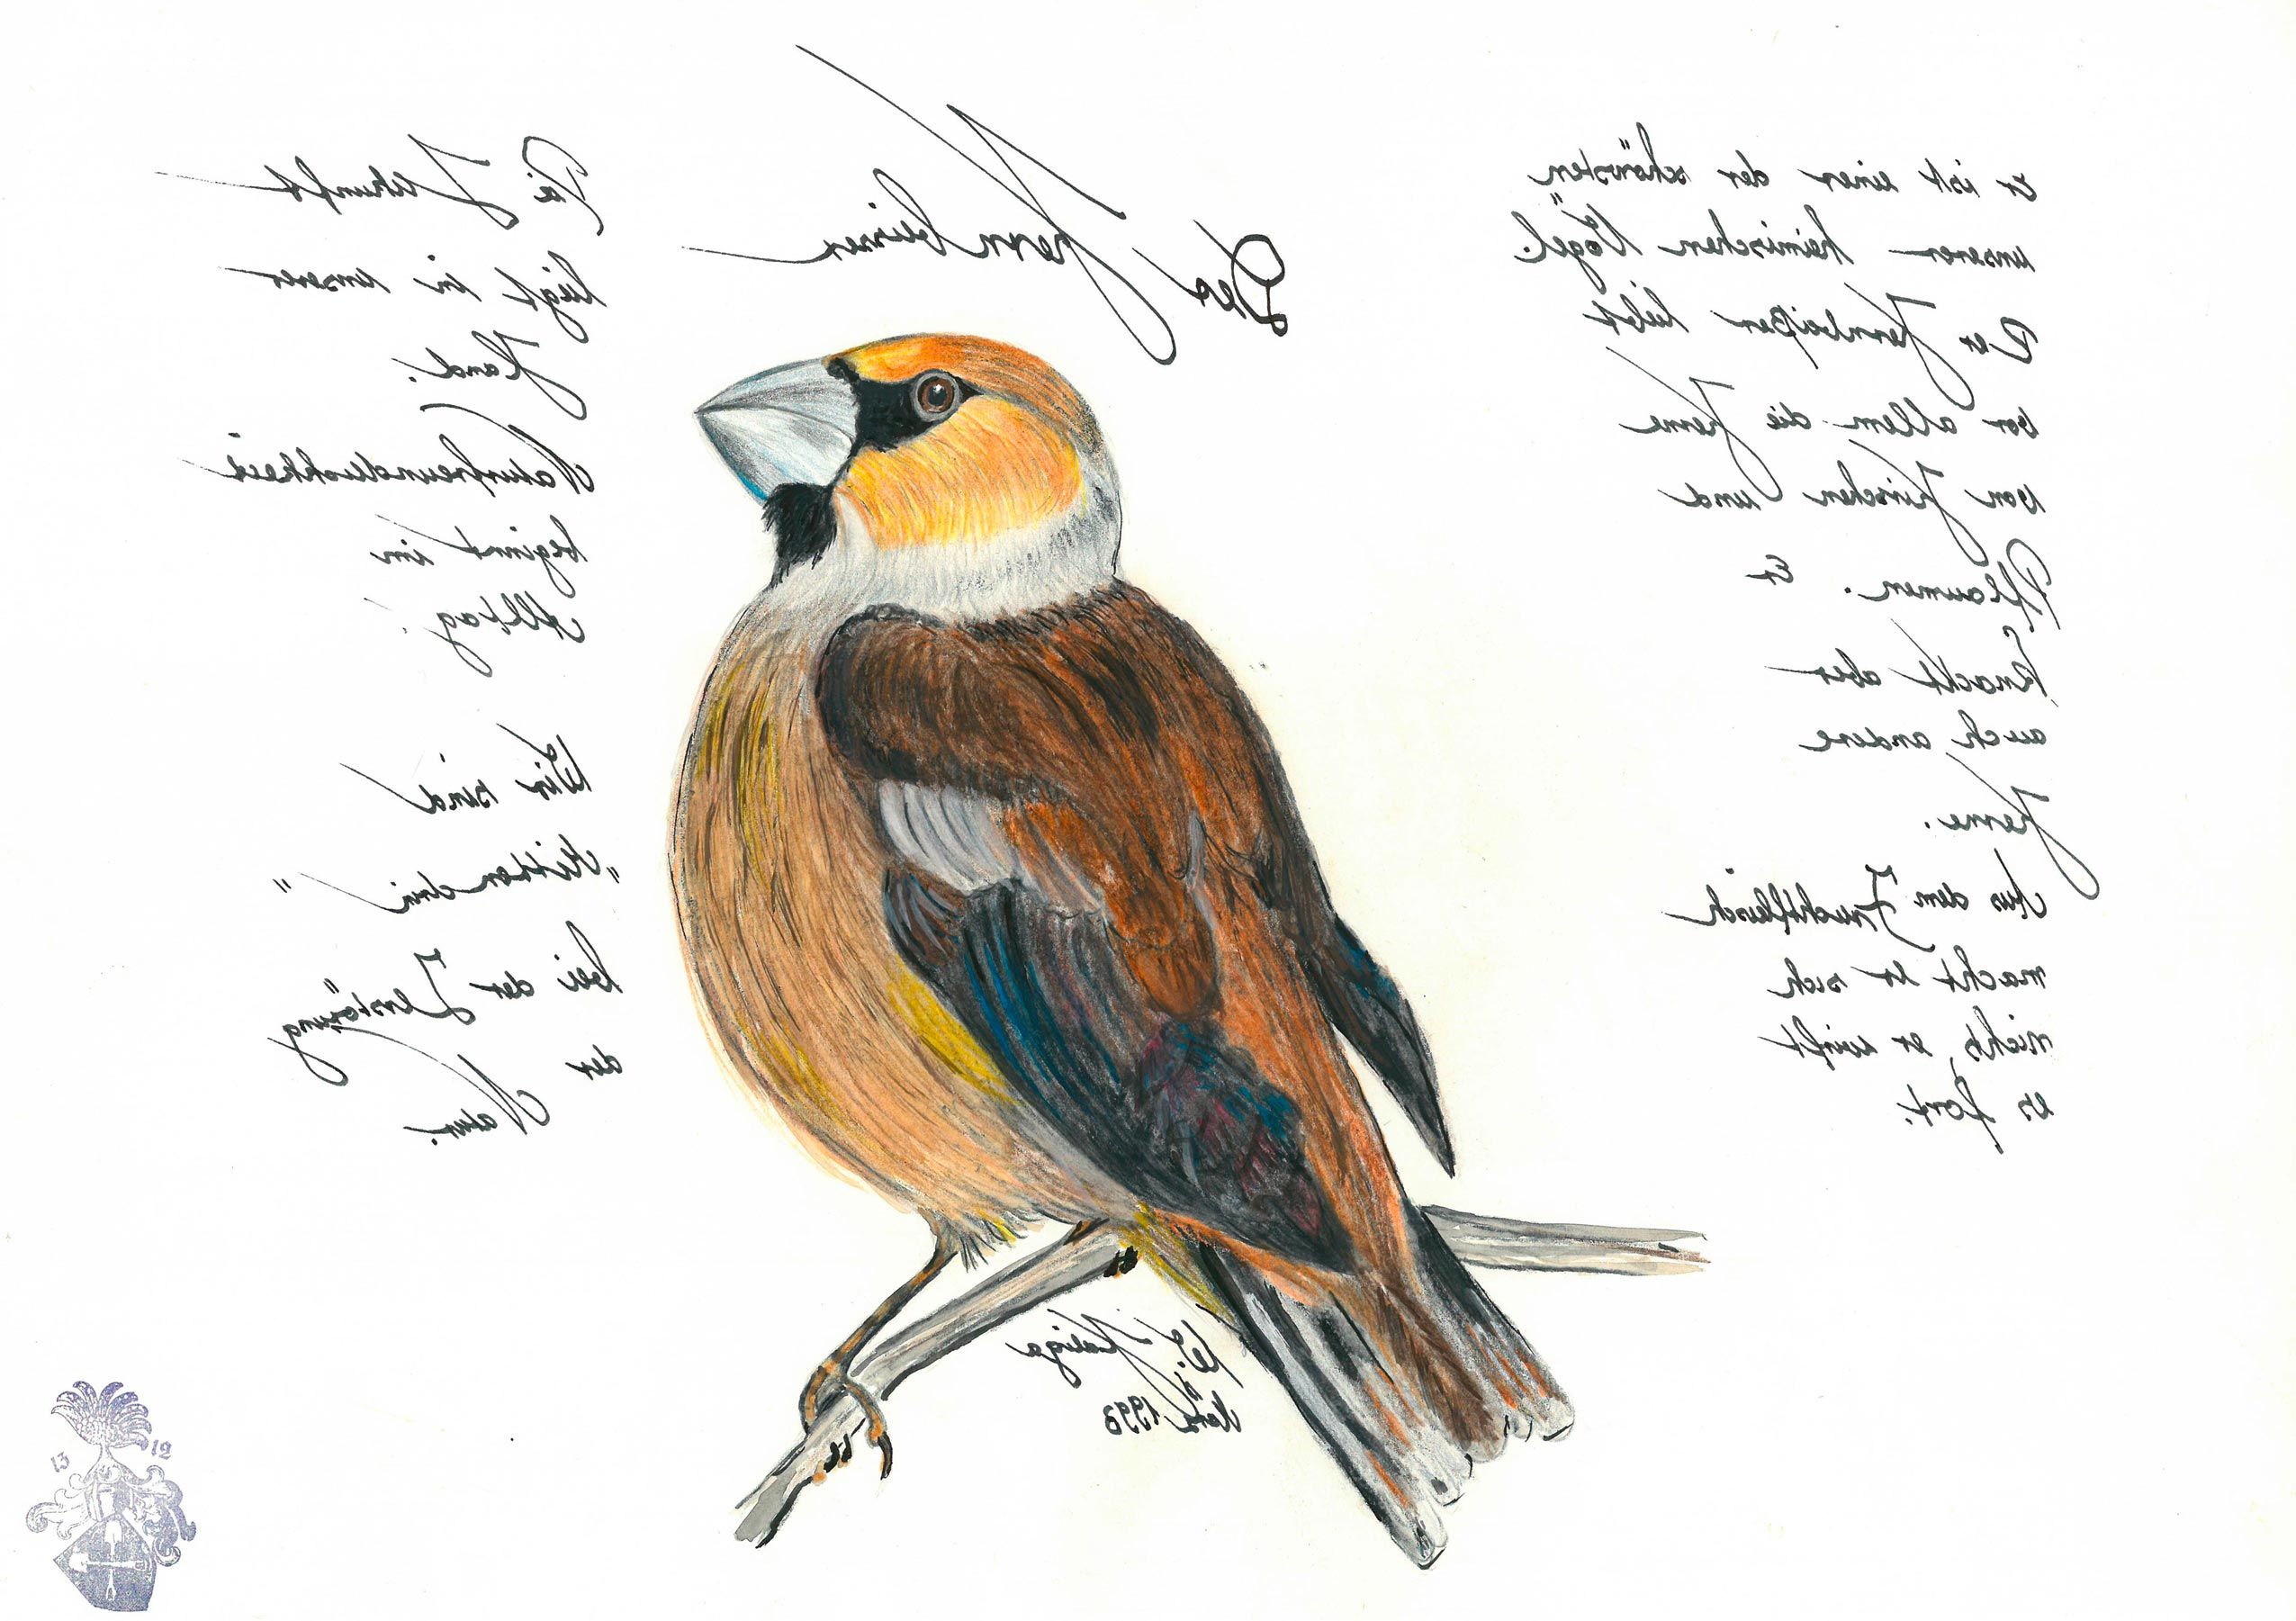 Der Kernbeisser
er ist einer der schönsten
unserer heimischen Vögel.
Der Kernbeißer liebt
vor allem die Kerne
von Kirschen und
Pflaumen. Er
knackt aber
auch andere
Kerne.
Aus dem Fruchtfleisch
macht er sich
nichts, er wirft
es fort.
Die Zukunft
liegt in unserer
Hand.
Naturfreundlichkeit
beginnt im
Alltag!
Wir sind
„Mitten drin"
bei der Zerstörung
der Natur.
1993
13 12